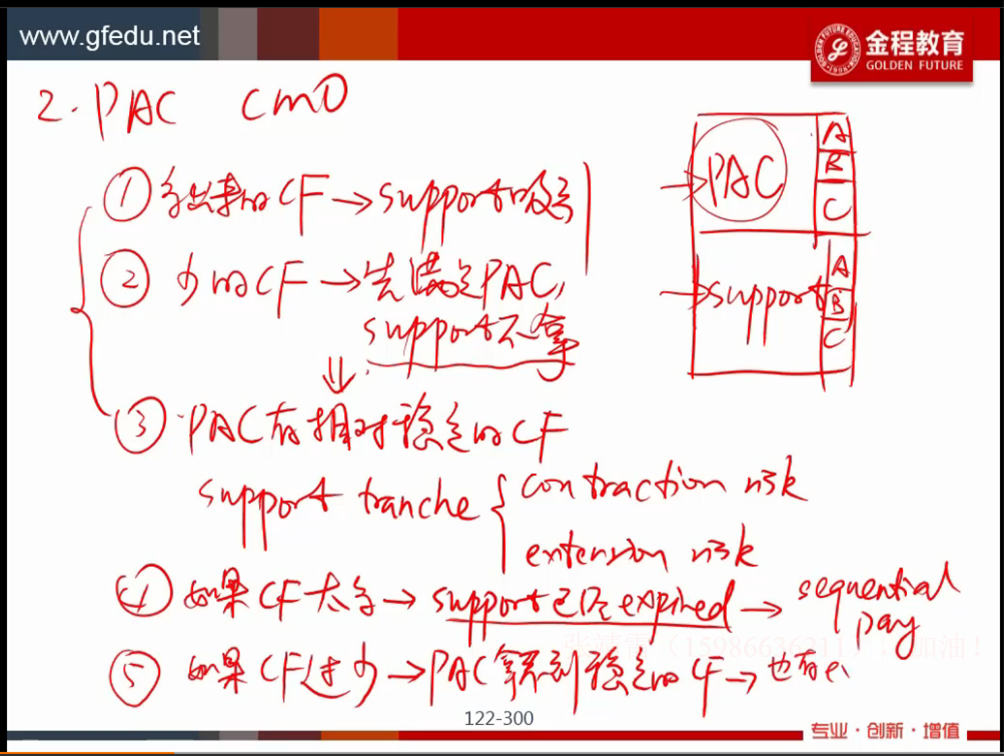 www.gfedu.net
金程教育
GOLDEN FUTURE
2. PAC CMO
① 多出来的CF → support吸了
② 少的CF → 先满足PAC,
support不拿
⇓
③ PAC有相对稳定的CF
support tranche { contraction risk
extension risk
④ 如果CF太多 → support已经expired → sequential
pay
⑤ 如果CF过少 → PAC拿不到稳定的CF → 也有
PAC
A
B
C
→ support
A
B
C
加油!
122-300
专业·创新·增值